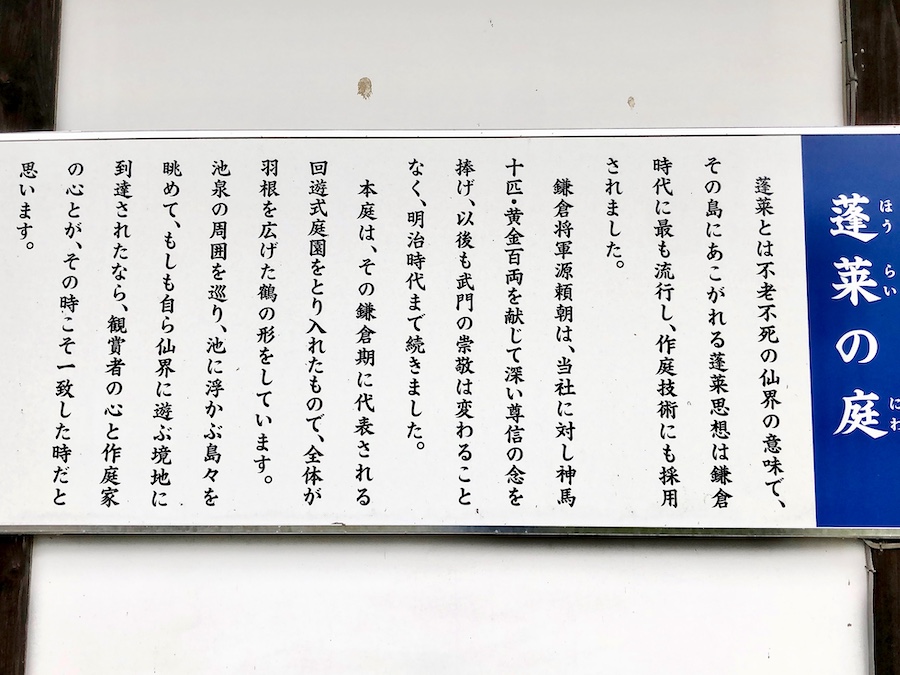 蓬莱の庭
ほうらい
にわ
蓬莱とは不老不死の仙界の意味で、
その島にあこがれる蓬莱思想は鎌倉
時代に最も流行し、作庭技術にも採用
されました。
鎌倉将軍源頼朝は、当社に対し神馬
十匹・黄金百両を献じて深い尊信の念を
捧げ、以後も武門の崇敬は変わること
なく、明治時代まで続きました。
本庭は、その鎌倉期に代表される
回遊式庭園をとり入れたもので、全体が
羽根を広げた鶴の形をしています。
池泉の周囲を巡り、池に浮かぶ島々を
眺めて、もしも自ら仙界に遊ぶ境地に
到達されたなら、観賞者の心と作庭家
の心とが、その時こそ一致した時だと
思います。